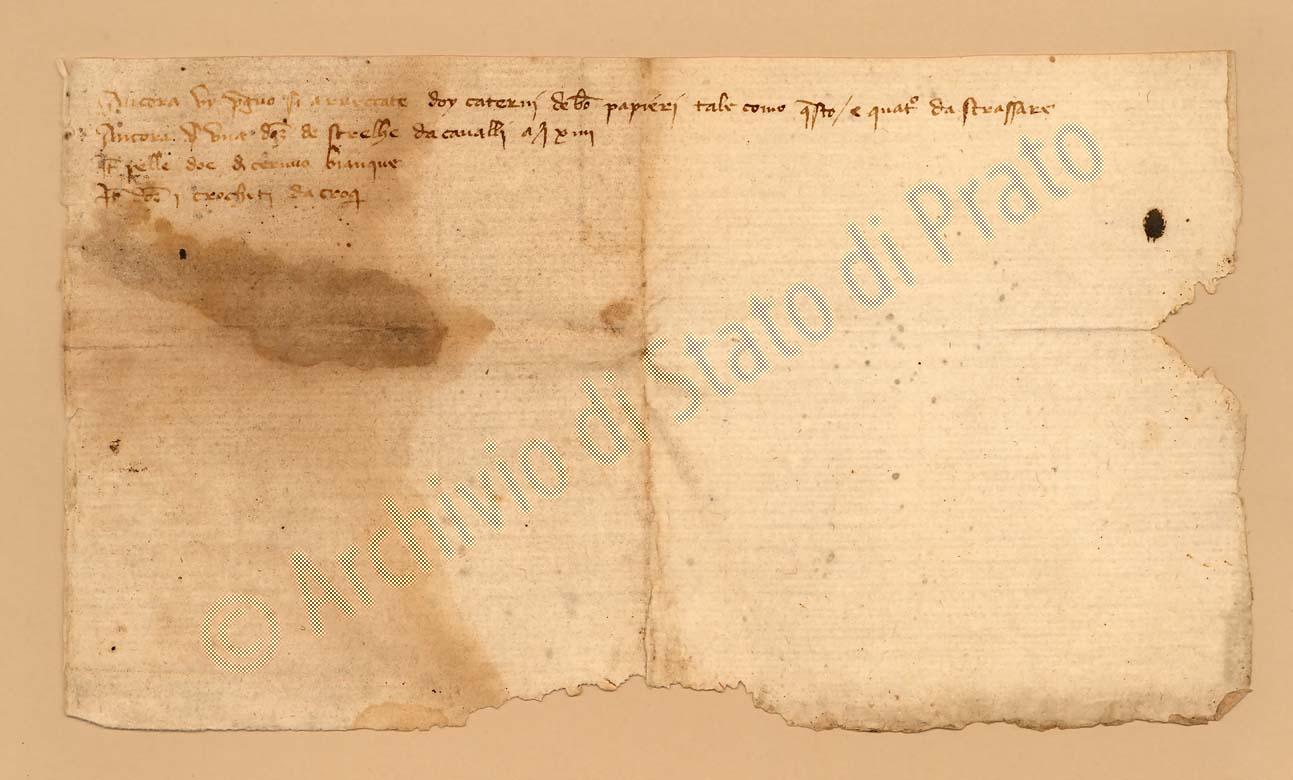 Ancora vy p̄guo si arreccate doy caterni de bō papieri tale como q̄sto / e quatº da strassare
Ancora una doz̄ de strelhe da cavalli a β xiiii
It̄ pelle doe di cervuo bianque
It̄ doz̄ i crocheti da croq
© Archivio di Stato di Prato